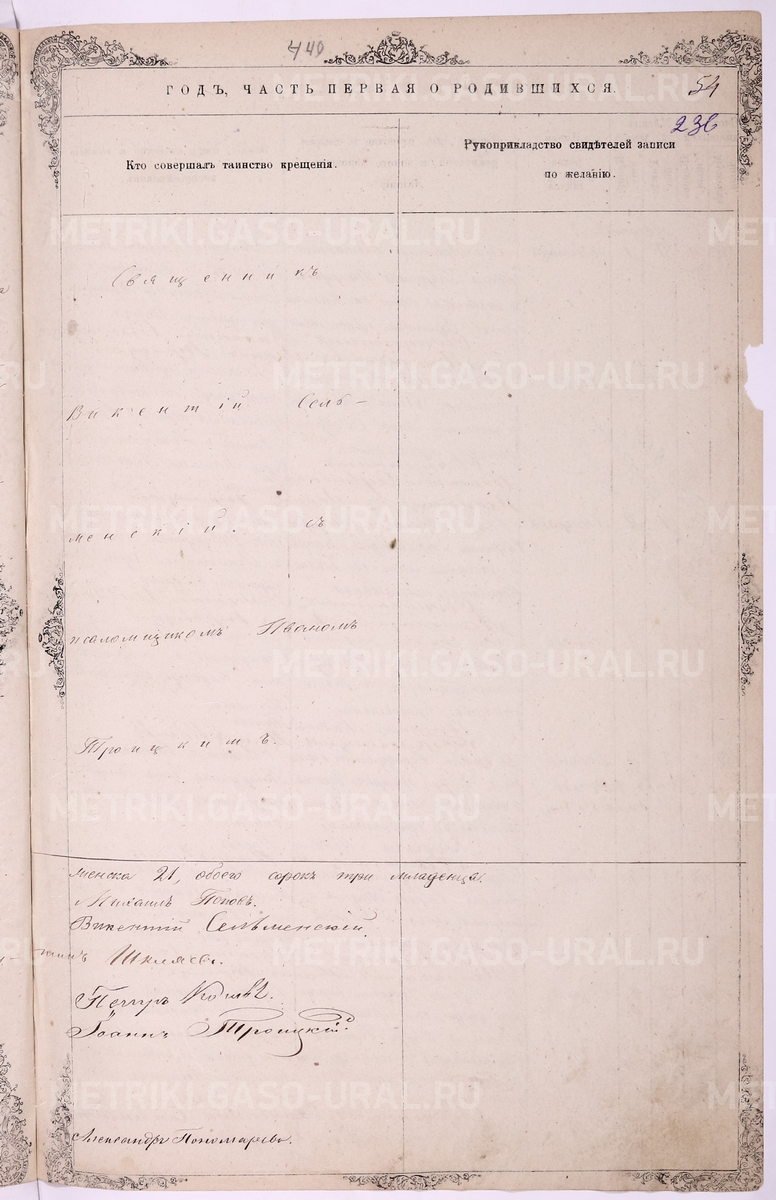 440
ГОДЪ, ЧАСТЬ ПЕРВАЯ О РОДИВШИХСЯ.
54
236
Кто совершалъ таинство крещенія.
Рукоприкладство свидѣтелей записи
по желанію.
METRIKI.GASO-URAL.RU
Священникъ
Викентій Селѣ-
менскій. съ
псаломщикомъ Иваномъ
Троицкимъ.
менска 21, обоего сорокъ три младенца.
Михаилъ Поповъ.
Викентій Селѣменскій
Шкляевъ.
Петръ
Іоаннъ Троицкій
Александръ Пономаревъ.